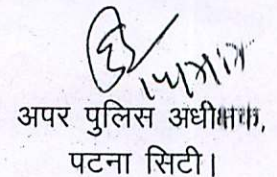 अपर पुलिस अधीक्षक,
पटना सिटी।